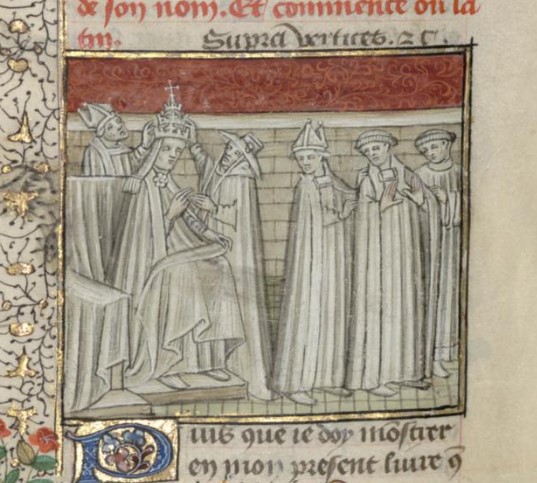 de son nom. Et commence ou la
tin. Supra vertices. 2 c̄.
Puis que ie doy mõstrer
en mon present liure q̄